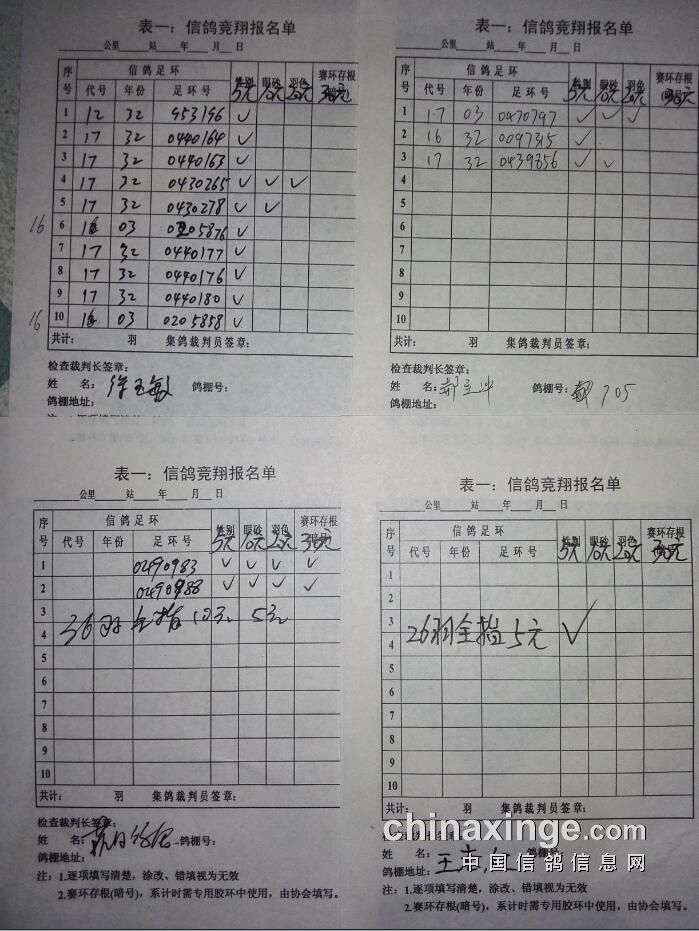 表一：信鸽竞翔报名单
公里 站 年 月 日
序号 信鸽足环 性别 眼砂 羽色 赛环存根
代号 年份 足环号 5元 10元 20元 30元
1 12 32 953196 ✓
2 17 32 0440164 ✓
3 17 32 0440163 ✓
4 17 32 0430265 ✓ ✓ ✓
5 17 32 0430278 ✓ ✓
16 6 16 03 0205876 ✓
7 17 32 0440177 ✓
8 17 32 0440176 ✓
9 17 32 0440180 ✓
16 10 16 03 0205858 ✓
共计： 羽 集鸽裁判员签章：
检查裁判长签章：
姓 名：徐玉敏 鸽棚号：
鸽棚地址：
表一：信鸽竞翔报名单
公里 站 年 月 日
序号 信鸽足环 性别 眼砂 羽色 赛环存根
代号 年份 足环号 5元 10元 20元 30元
1 17 03 0470797 ✓ ✓ ✓
2 16 32 0097315 ✓
3 17 32 0439856 ✓ ✓
4
5
6
7
8
9
10
共计： 羽 集鸽裁判员签章：
检查裁判长签章：
姓 名： 鸽棚号： 705
鸽棚地址：
表一：信鸽竞翔报名单
公里 站 年 月 日
序号 信鸽足环 性别 眼砂 羽色 赛环存根
代号 年份 足环号 5元 10元 20元 30元
1 0490983 ✓ ✓ ✓ ✓
2 0490988 ✓ ✓ ✓ ✓
3
4 36羽全指 10元 5元
5
6
7
8
9
10
共计： 羽 集鸽裁判员签章：
检查裁判长签章：
姓 名： 鸽棚号：
鸽棚地址：
注：1.逐项填写清楚，涂改、错填视为无效
2.赛环存根(暗号)，系计时需专用胶环中使用，由协会填写。
表一：信鸽竞翔报名单
公里 站 年 月 日
序号 信鸽足环 性别 眼砂 羽色 赛环存根
代号 年份 足环号 5元 10元 20元 30元
1
2
3
4 26羽全指5元 ✓
5
6
7
8
9
10
共计： 羽 集鸽裁判员签章：
姓 名：王 鸽棚号：
鸽棚地址：
注：1.逐项填写清楚，涂改、错填视为无效
2.赛环存根(暗号)，系计时需专用胶环中使用，由协会填写。
chinaxinge.com
中国信鸽信息网